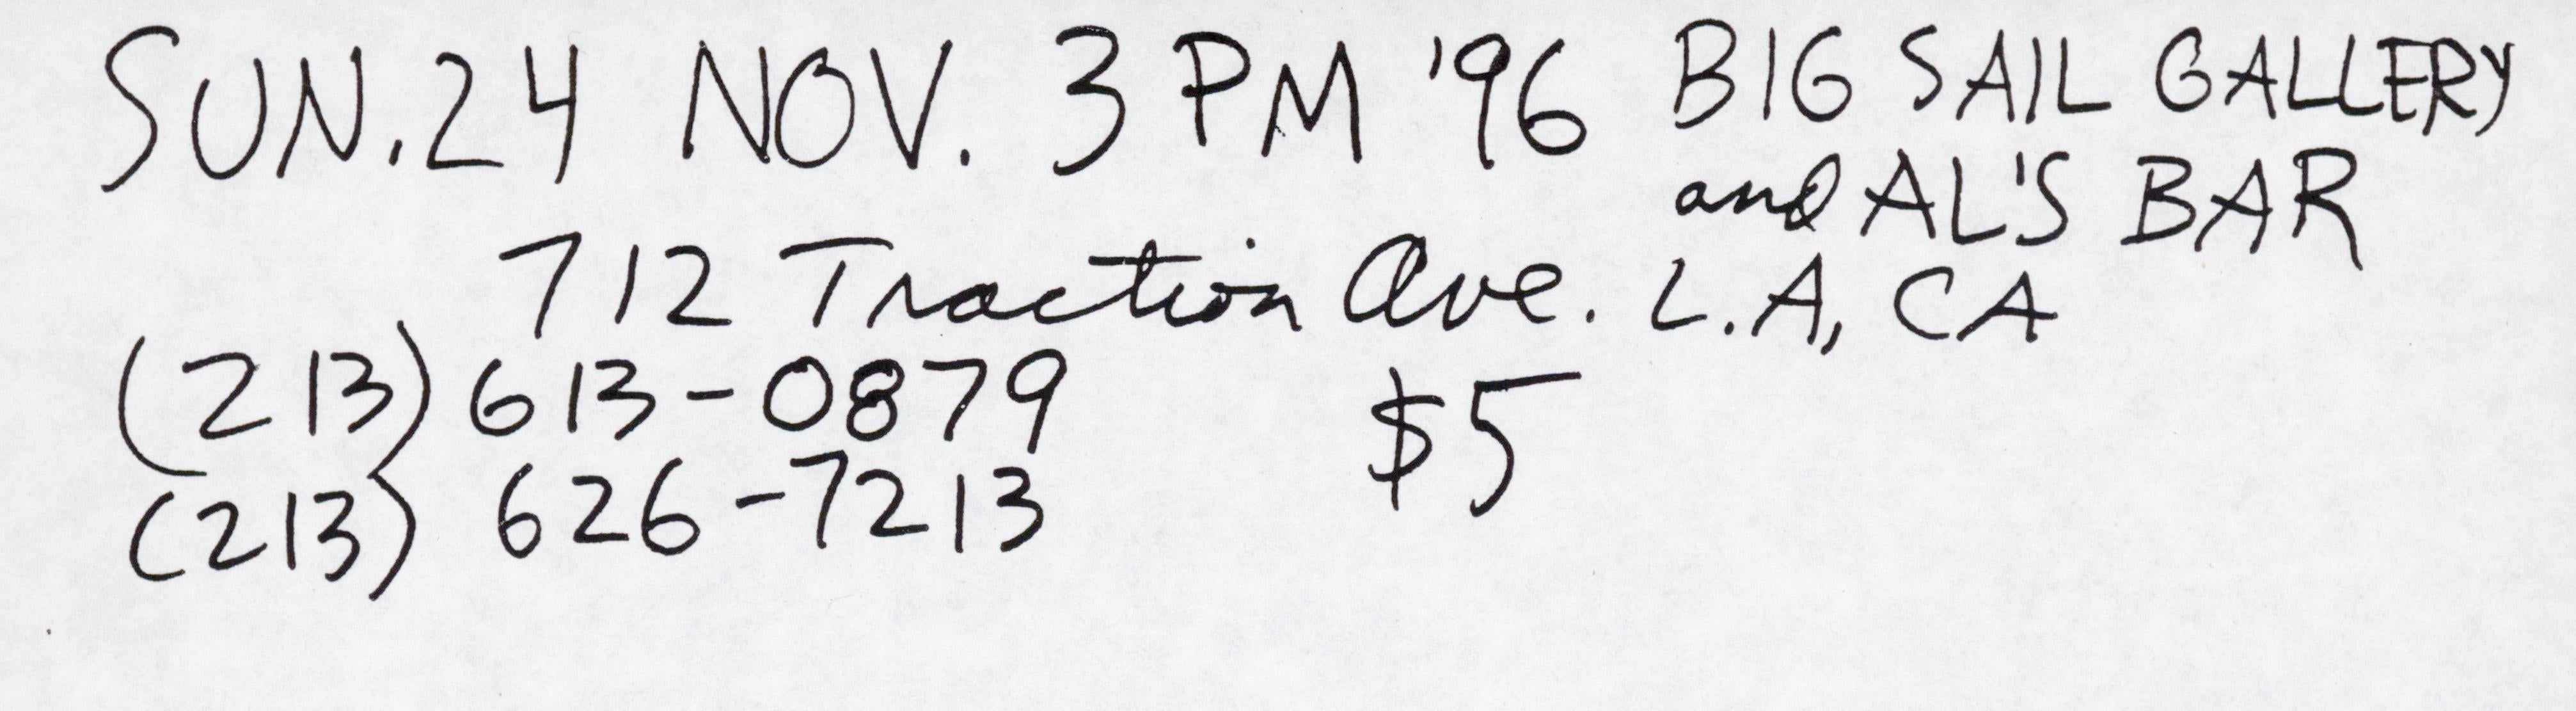 SUN. 24 NOV. 3 PM '96 BIG SAIL GALLERY
and AL'S BAR
712 Traction Ave. L.A, CA
(213) 613-0879 $5
(213) 626-7213